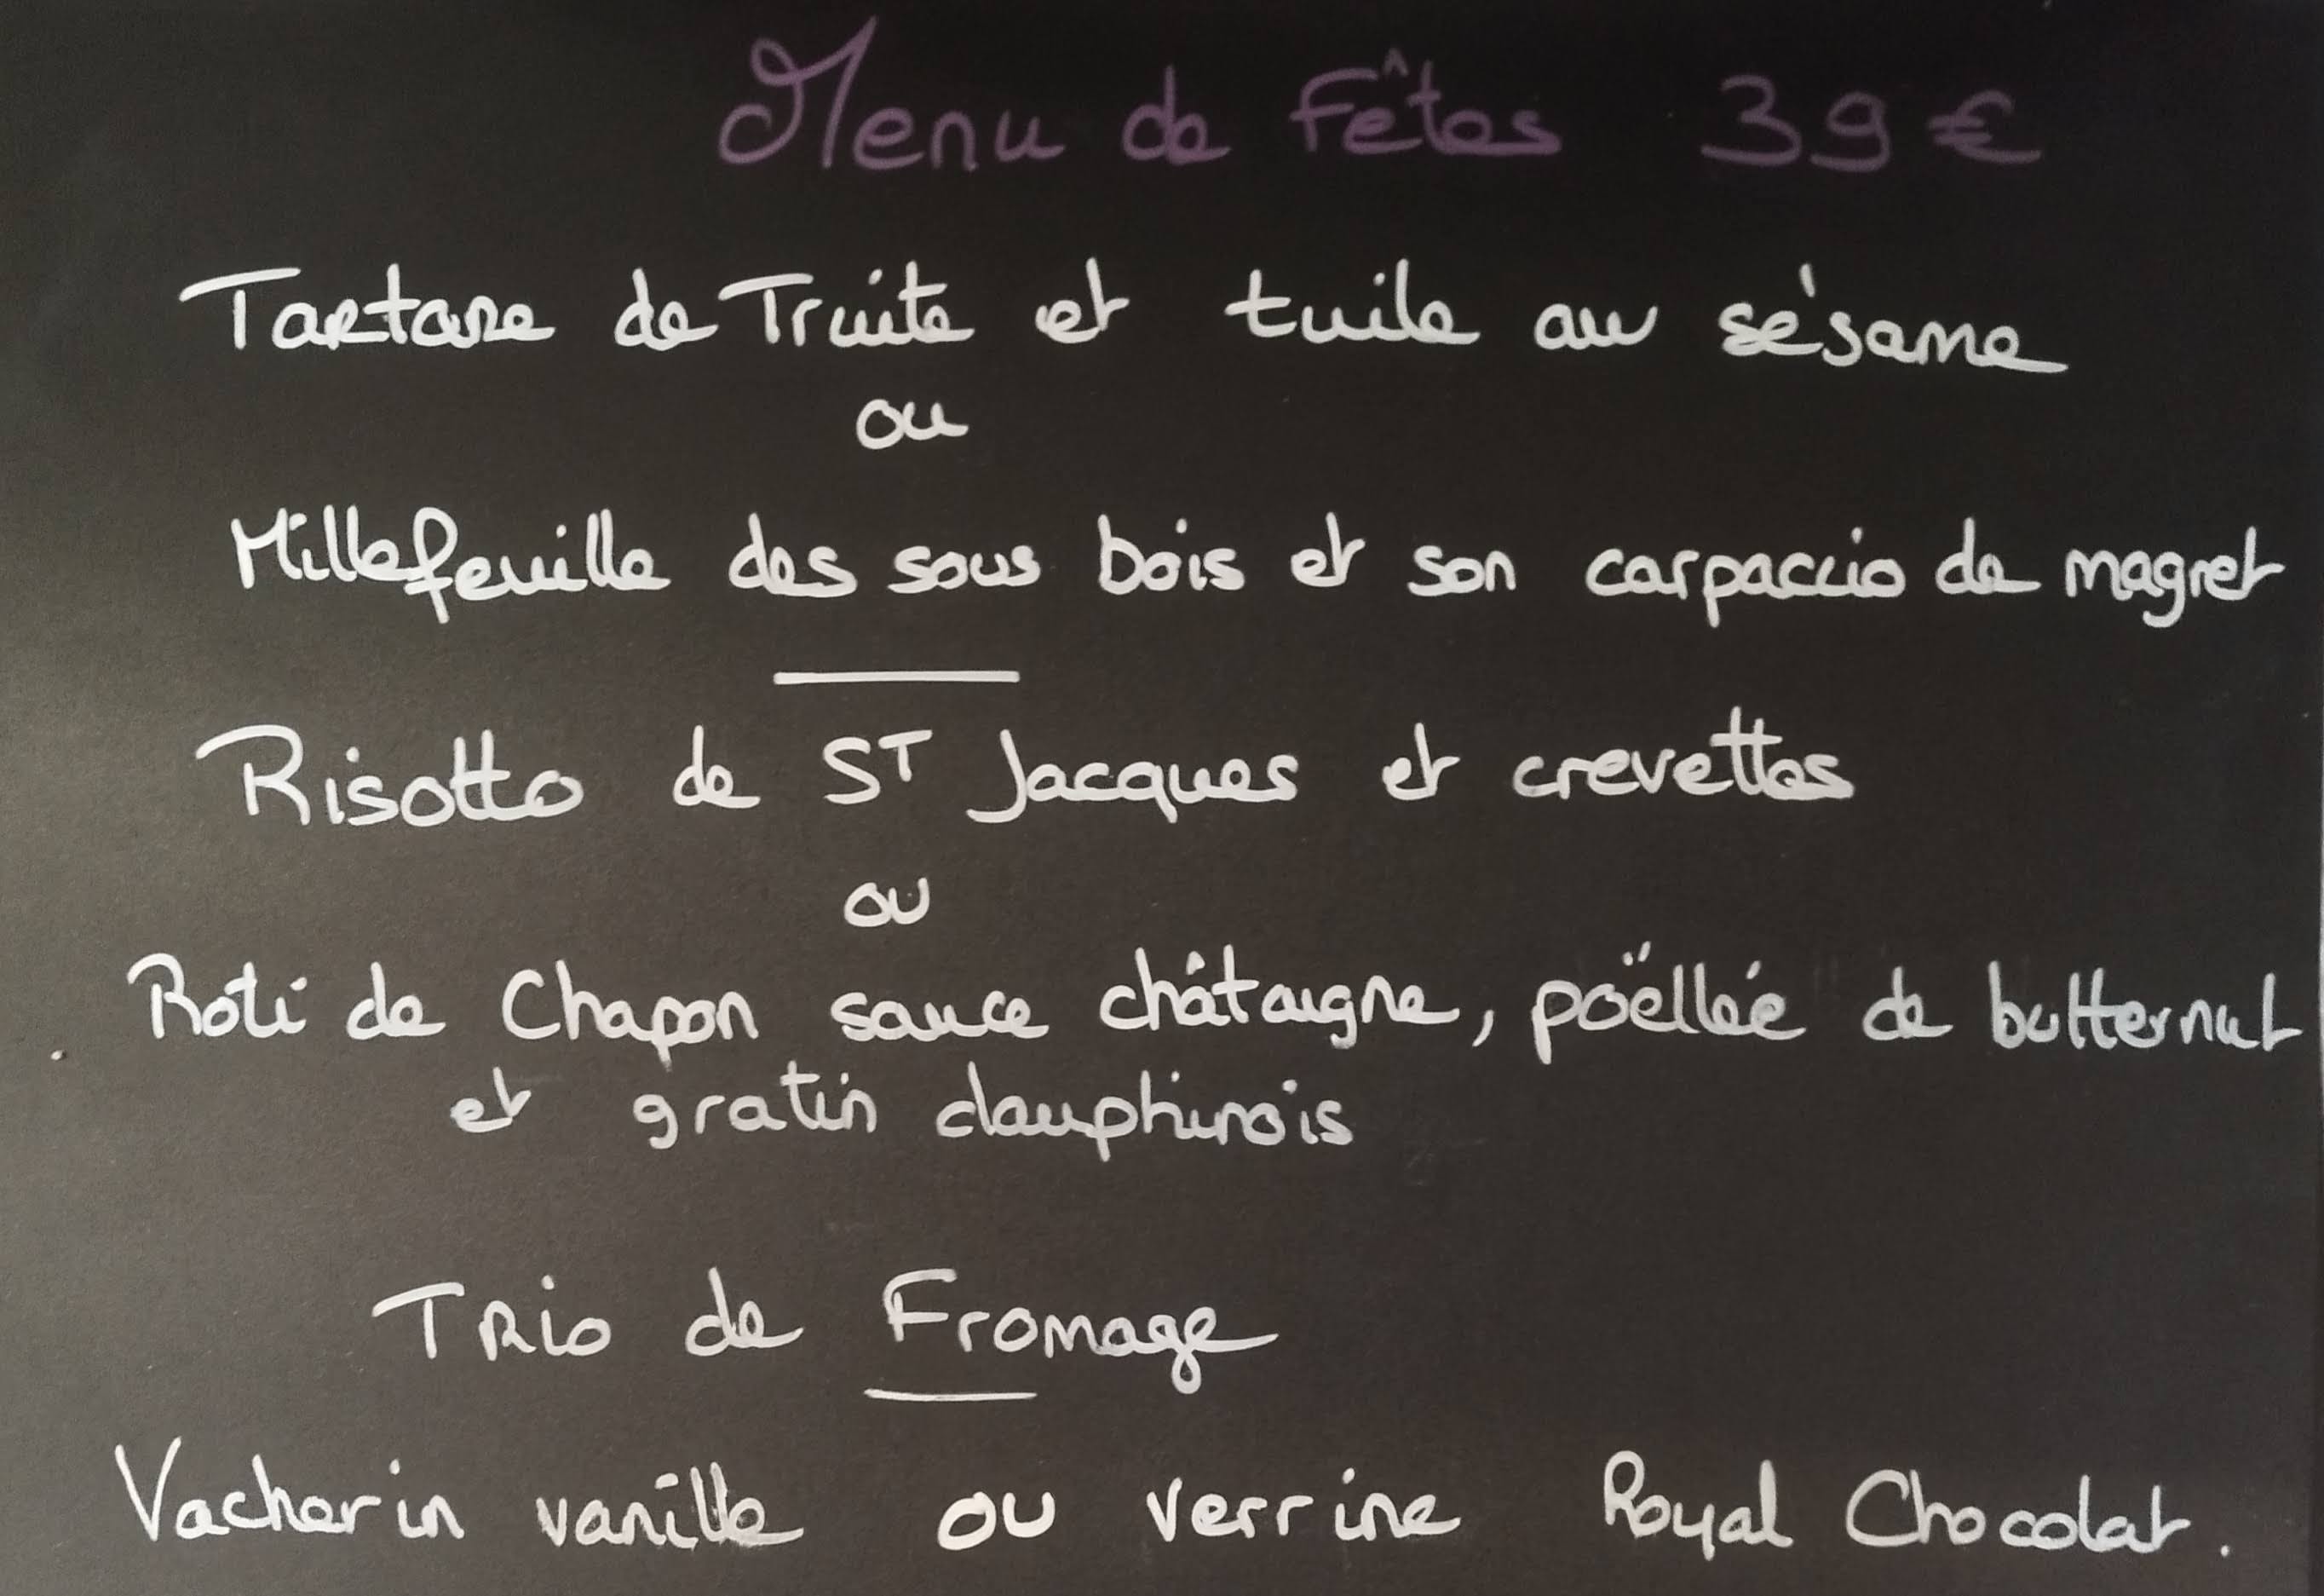 Menu de Fêtes 39 €
Tartare de Truite et tuile au sésame
ou
Millefeuille des sous bois et son carpaccio de magret
Risotto de ST Jacques et crevettes
ou
Rôti de Chapon sauce châtaigne, poëllée de butternut
et gratin dauphinois
Trio de Fromage
Vacherin vanille ou verrine Royal Chocolat.